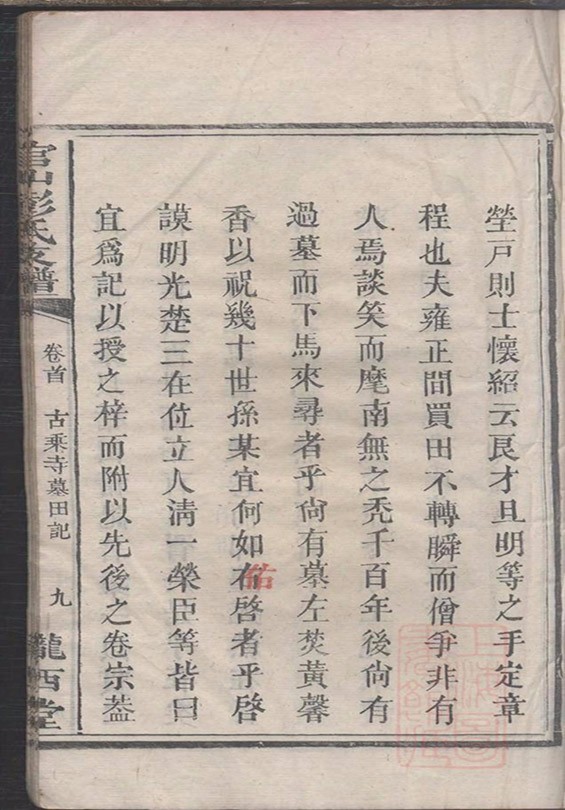 塋戸則士懷紹云艮才且明等之手定章
程也夫雍正間買田不轉瞬而僧爭非有
人焉談笑而麾南無之禿千百年後尙有
過墓而下馬來尋者乎尙有墓左焚黃馨
香以祝幾十世孫某宜何如右啓者乎啓
謨明光楚三在位立人淸一榮臣等皆曰
宜爲記以授之梓而附以先後之卷宗葢
官山彭氏支譜
卷首 古乘寺墓田記 九
隴西堂